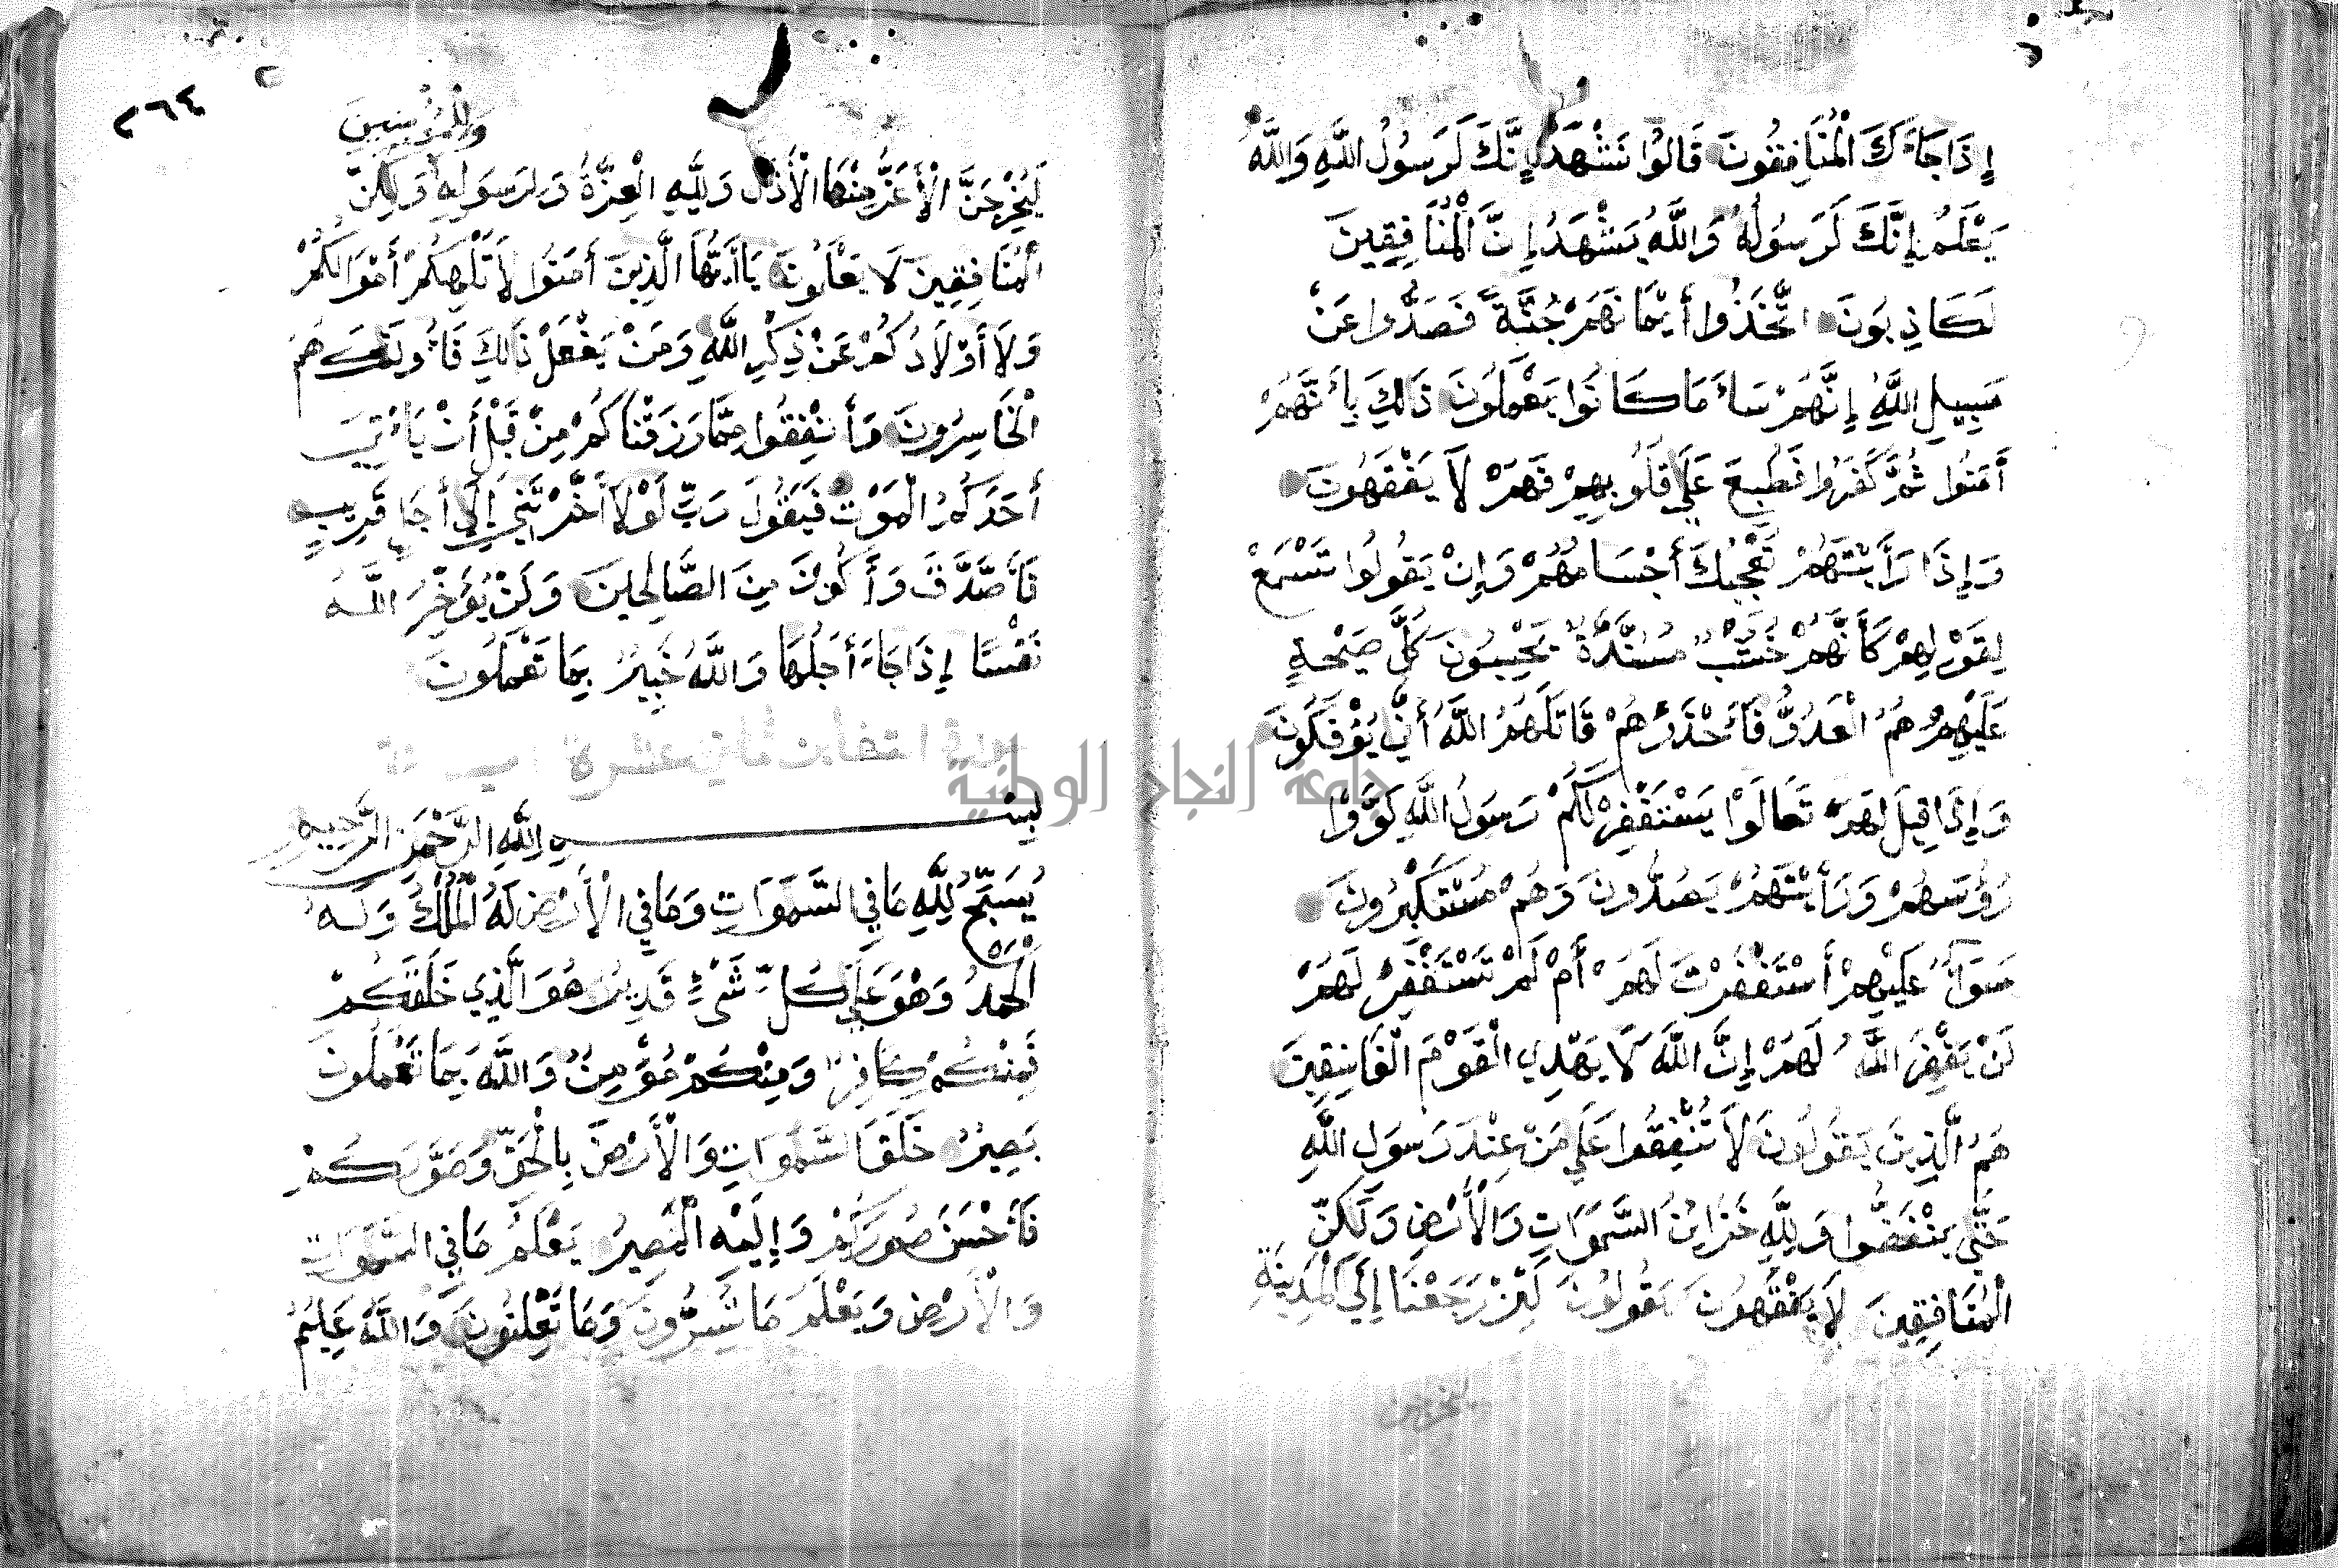 إِذَا جَاءَكَ الْمُنَافِقُونَ قَالُوا نَشْهَدُ إِنَّكَ لَرَسُولُ اللَّهِ وَاللَّهُ
يَعْلَمُ إِنَّكَ لَرَسُولُهُ وَاللَّهُ يَشْهَدُ إِنَّ الْمُنَافِقِينَ
لَكَاذِبُونَ اتَّخَذُوا أَيْمَانَهُمْ جُنَّةً فَصَدُّوا عَنْ
سَبِيلِ اللَّهِ إِنَّهُمْ سَاءَ مَا كَانُوا يَعْمَلُونَ ذَلِكَ بِأَنَّهُمْ
أَمَنُوا ثُمَّ كَفَرُوا فَطُبِعَ عَلَى قُلُوبِهِمْ فَهُمْ لَا يَفْقَهُونَ
وَإِذَا رَأَيْتَهُمْ تُعْجِبُكَ أَجْسَامُهُمْ وَإِنْ يَقُولُوا تَسْمَعْ
لِقَوْلِهِمْ كَأَنَّهُمْ خُشُبٌ مُسَنَّدَةٌ يَحْسِبُونَ كُلَّ صَيْحَةٍ
عَلَيْهِمْ هُمُ الْعَدُوُّ فَاحْذَرْهُمْ قَاتَلَهُمُ اللَّهُ أَنَّى يُؤْفَكُونَ
وَإِذَا قِيلَ لَهُمْ تَعَالَوْا يَسْتَغْفِرْ لَكُمْ رَسُولُ اللَّهِ لَوَّوْا
رُؤُسَهُمْ وَرَأَيْتَهُمْ يَصُدُّونَ وَهُمْ مُسْتَكْبِرُونَ
سَوَاءٌ عَلَيْهِمْ أَسْتَغْفَرْتَ لَهُمْ أَمْ لَمْ تَسْتَغْفِرْ لَهُمْ
لَنْ يَغْفِرَ اللَّهُ لَهُمْ إِنَّ اللَّهَ لَا يَهْدِي الْقَوْمَ الْفَاسِقِينَ
هُمُ الَّذِينَ يَقُولُونَ لَا تُنْفِقُوا عَلَى مَنْ عِنْدَ رَسُولِ اللَّهِ
حَتَّى يَنْفَضُّوا وَلِلَّهِ خَزَائِنُ السَّمَوَاتِ وَالْأَرْضِ وَلَكِنَّ
الْمُنَافِقِينَ لَا يَفْقَهُونَ يَقُولُونَ لَئِنْ رَجَعْنَا إِلَى الْمَدِينَةِ
ليخرجن
٢٦٤
وَلِلْمُؤْمِنِينَ
لَيُخْرِجَنَّ الْأَعَزُّ مِنْهَا الْأَذَلَّ وَلِلَّهِ الْعِزَّةُ وَلِرَسُولِهِ وَلَكِنَّ
الْمُنَافِقِينَ لَا يَعْلَمُونَ يَاأَيُّهَا الَّذِينَ أَمَنُوا لَا تُلْهِكُمْ أَمْوَالُكُمْ
وَلَا أَوْلَادُكُمْ عَنْ ذِكْرِ اللَّهِ وَمَنْ يَفْعَلْ ذَالِكَ فَأُولَئِكَ هُمُ
الْخَاسِرُونَ وَأَنْفِقُوا مِمَّا رَزَقْنَاكُمْ مِنْ قَبْلِ أَنْ يَأْتِيَ
أَحَدَكُمُ الْمَوْتُ فَيَقُولَ رَبِّ لَوْلَا أَخَّرْتَنِي إِلَى أَجَلٍ قَرِيبٍ
فَأَصَّدَّقَ وَأَكُونَ مِنَ الصَّالِحِينَ وَلَنْ يُؤَخِّرَ اللَّهُ
نَفْسًا إِذَا جَاءَ أَجَلُهَا وَاللَّهُ خَبِيرٌ بِمَا تَعْمَلُونَ
جامعة النجاح الوطنية
بِسْمِ اللَّهِ الرَّحْمَنِ الرَّحِيمِ
يُسَبِّحُ لِلَّهِ مَا فِي السَّمَوَاتِ وَمَا فِي الْأَرْضِ لَهُ الْمُلْكُ وَلَهُ
الْحَمْدُ وَهُوَ عَلَى كُلِّ شَيْءٍ قَدِيرٌ هُوَ الَّذِي خَلَقَكُمْ
فَمِنْكُمْ كَافِرٌ وَمِنْكُمْ مُؤْمِنٌ وَاللَّهُ بِمَا تَعْمَلُونَ
بَصِيرٌ خَلَقَ السَّمَوَاتِ وَالْأَرْضَ بِالْحَقِّ وَصَوَّرَكُمْ
فَأَحْسَنَ صُوَرَكُمْ وَإِلَيْهِ الْمَصِيرُ يَعْلَمُ مَا فِي السَّمَوَاتِ
وَالْأَرْضِ وَيَعْلَمُ مَا تُسِرُّونَ وَمَا تُعْلِنُونَ وَاللَّهُ عَلِيمٌ